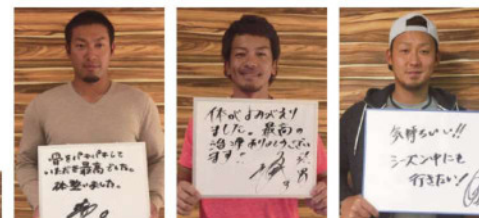 骨をバキバキして
いただき最高でした。
体整いました。
体がよみがえり
ました。最高の
治療ありがとうござい
ます!!
気持ちいい!!
シーズン中にも
行きたい!